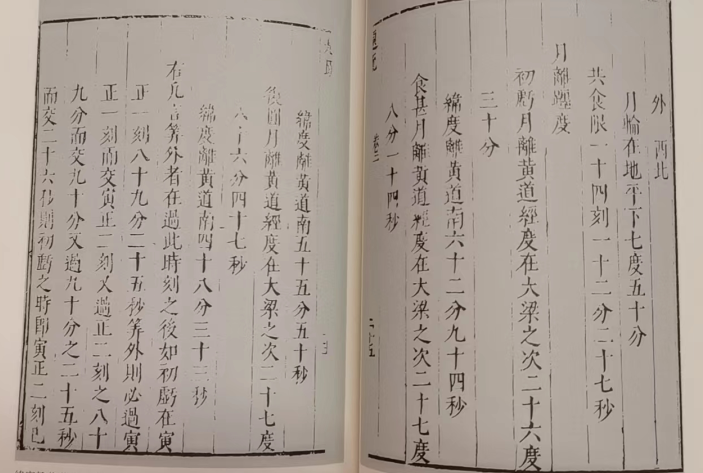 外 西北
月輪在地平下七度五十分
共食限一十四刻一十二分二十七秒
月離躔度
初虧月離黃道經度在大梁之次二十六度
三十分
緯度離黃道南六十二分九十四秒
食甚月離黃道經度在大梁之次二十七度
八分一十四秒
緯度離黃道南五十五分五十秒
復圓月離黃道經度在大梁之次二十七度
六分四十七秒
緯度離黃道南四十八分三十三秒
右凡言筭外者在過此時刻之後如初虧在寅
正一刻八十九分二十五秒筭外則必過寅
正一刻而交寅正二刻又過正二刻之八十
九分而交九十分又過九十分之二十五秒
而交二十六秒則初虧之時即寅正二刻已